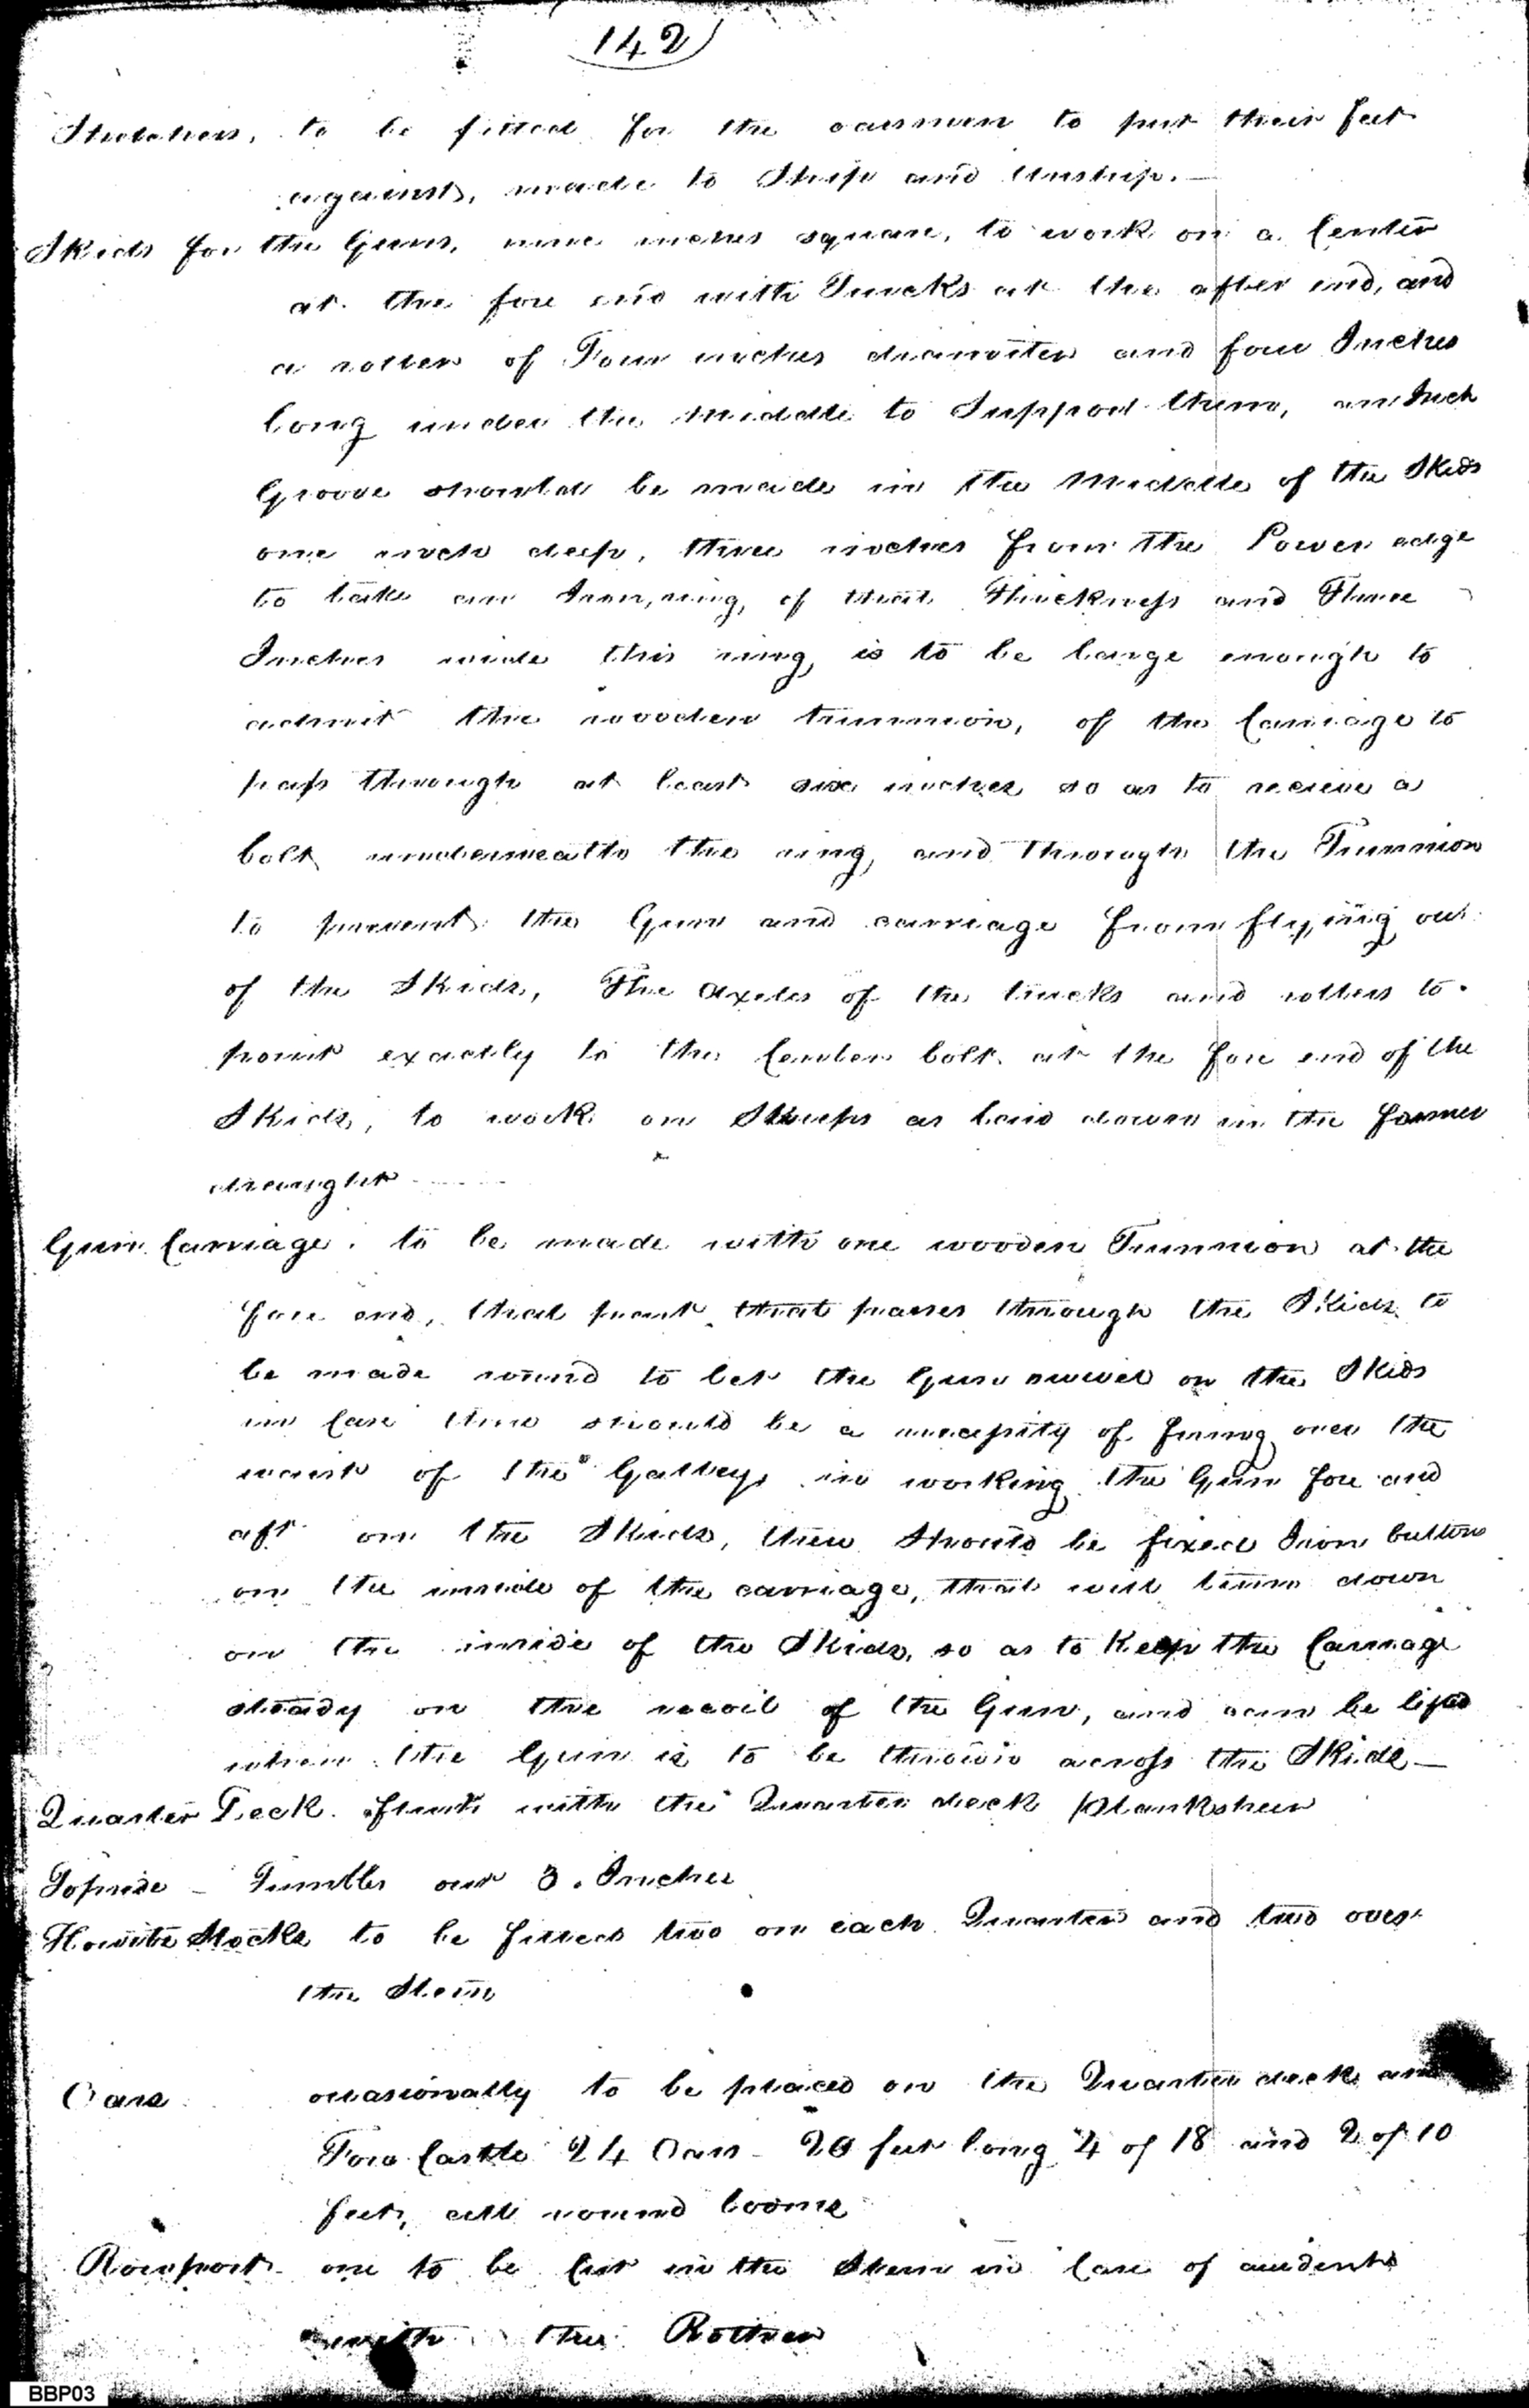 142
Stretchers, to be fitted for the oarsmen to put their feet
against, made to Ship and Unship.—
Skids for the Guns, nine inches square, to work on a Center
at the fore end with Trucks at the after end, and
a roller of Four inches diameter and four Inches
long under the Middle to Support them, an Inch
Groove should be made in the Middle of the Skids
one inch deep, three inches from the Lower edge
to take an Iron, ring, of that Thickness and Three
Inches wide this ring, is to be large enough to
admit the wooden trunnion, of the Carriage to
pass through at least six inches so as to recieve a
bolt underneath the ring, and through the Trunnion
to prevent the Gun and carriage from flying out
of the Skids, The Axeles of the trucks and rollers to
point exactly to the Center bolt at the fore end of the
Skids, to work on Sweeps as laid down in the former
draught
Gun Carriage. to be made with one wooden Trunnion at the
fore end, that part that passes through the Skids to
be made round to let the Gun swivel on the Skids
in Case there should be a necessity of firing over the
waist of the Galley, in working the Gun fore and
aft on the Skids, there Should be fixed Iron buttons
on the inside of the carriage, that will turn down
on the inside of the Skids, so as to Keep the Carriage
steady on the recoil of the Gun, and can be lifted
when the Gun is to be thrown across the Skids—
Quarter Deck. flush with the Quarter deck Planksheer
Topside — Tumbles out 3. Inches
Howitz Stocks to be fitted two on each Quarter and two over
the Stern
Oars occasionally to be placed on the Quarter deck and
Fore Castle 24 Oars - 20 feet long 4 of 18 and 2 of 10
feet, all round looms
Rowport. one to be Cut in the Stern in Case of accidents
with the Rother
BBP03